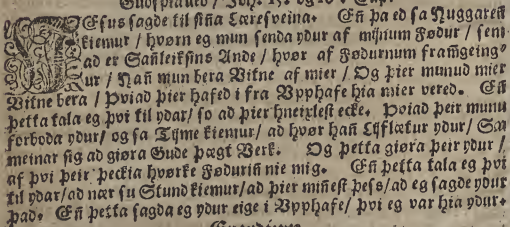 Guðspialled / Joh. 15. og 16. Cap.
JEsus sagde til sijna Læresveina. Eñ þa ed sa Huggareñ
kiemur / hvørn eg mun senda ydur af mijnum Fødur / sem
ad er Sañleiksins Ande / hvør af Fødurnum framgeing⸗
ur / Hañ mun bera Vitne af mier / Og þier munud mier
Vitne bera / Þviad þier hafed i fra Vpphafe hia mier vered. Eñ
þetta tala eg þvi til ydar/ so ad þier hneixlest ecke. Þviad þeir munu
forboda ydur/ og sa Tijme kiemur/ ad hvør hañ Lijflætur ydur/ Sa
meinar sig ad giøra Gude þægt Verk. Og þetta giøra þeir ydur /
af þvi þeir þeckia hvørke Fødurin̄ nie mig. Eñ þetta tala eg þvi
til ydar/ad nær su Stund kiemur/ad þier miñest þess/ad eg sagde ydur
þad. Eñ þetta sagda eg ydur eige i Vpphafe/ þvi eg var hia ydur.